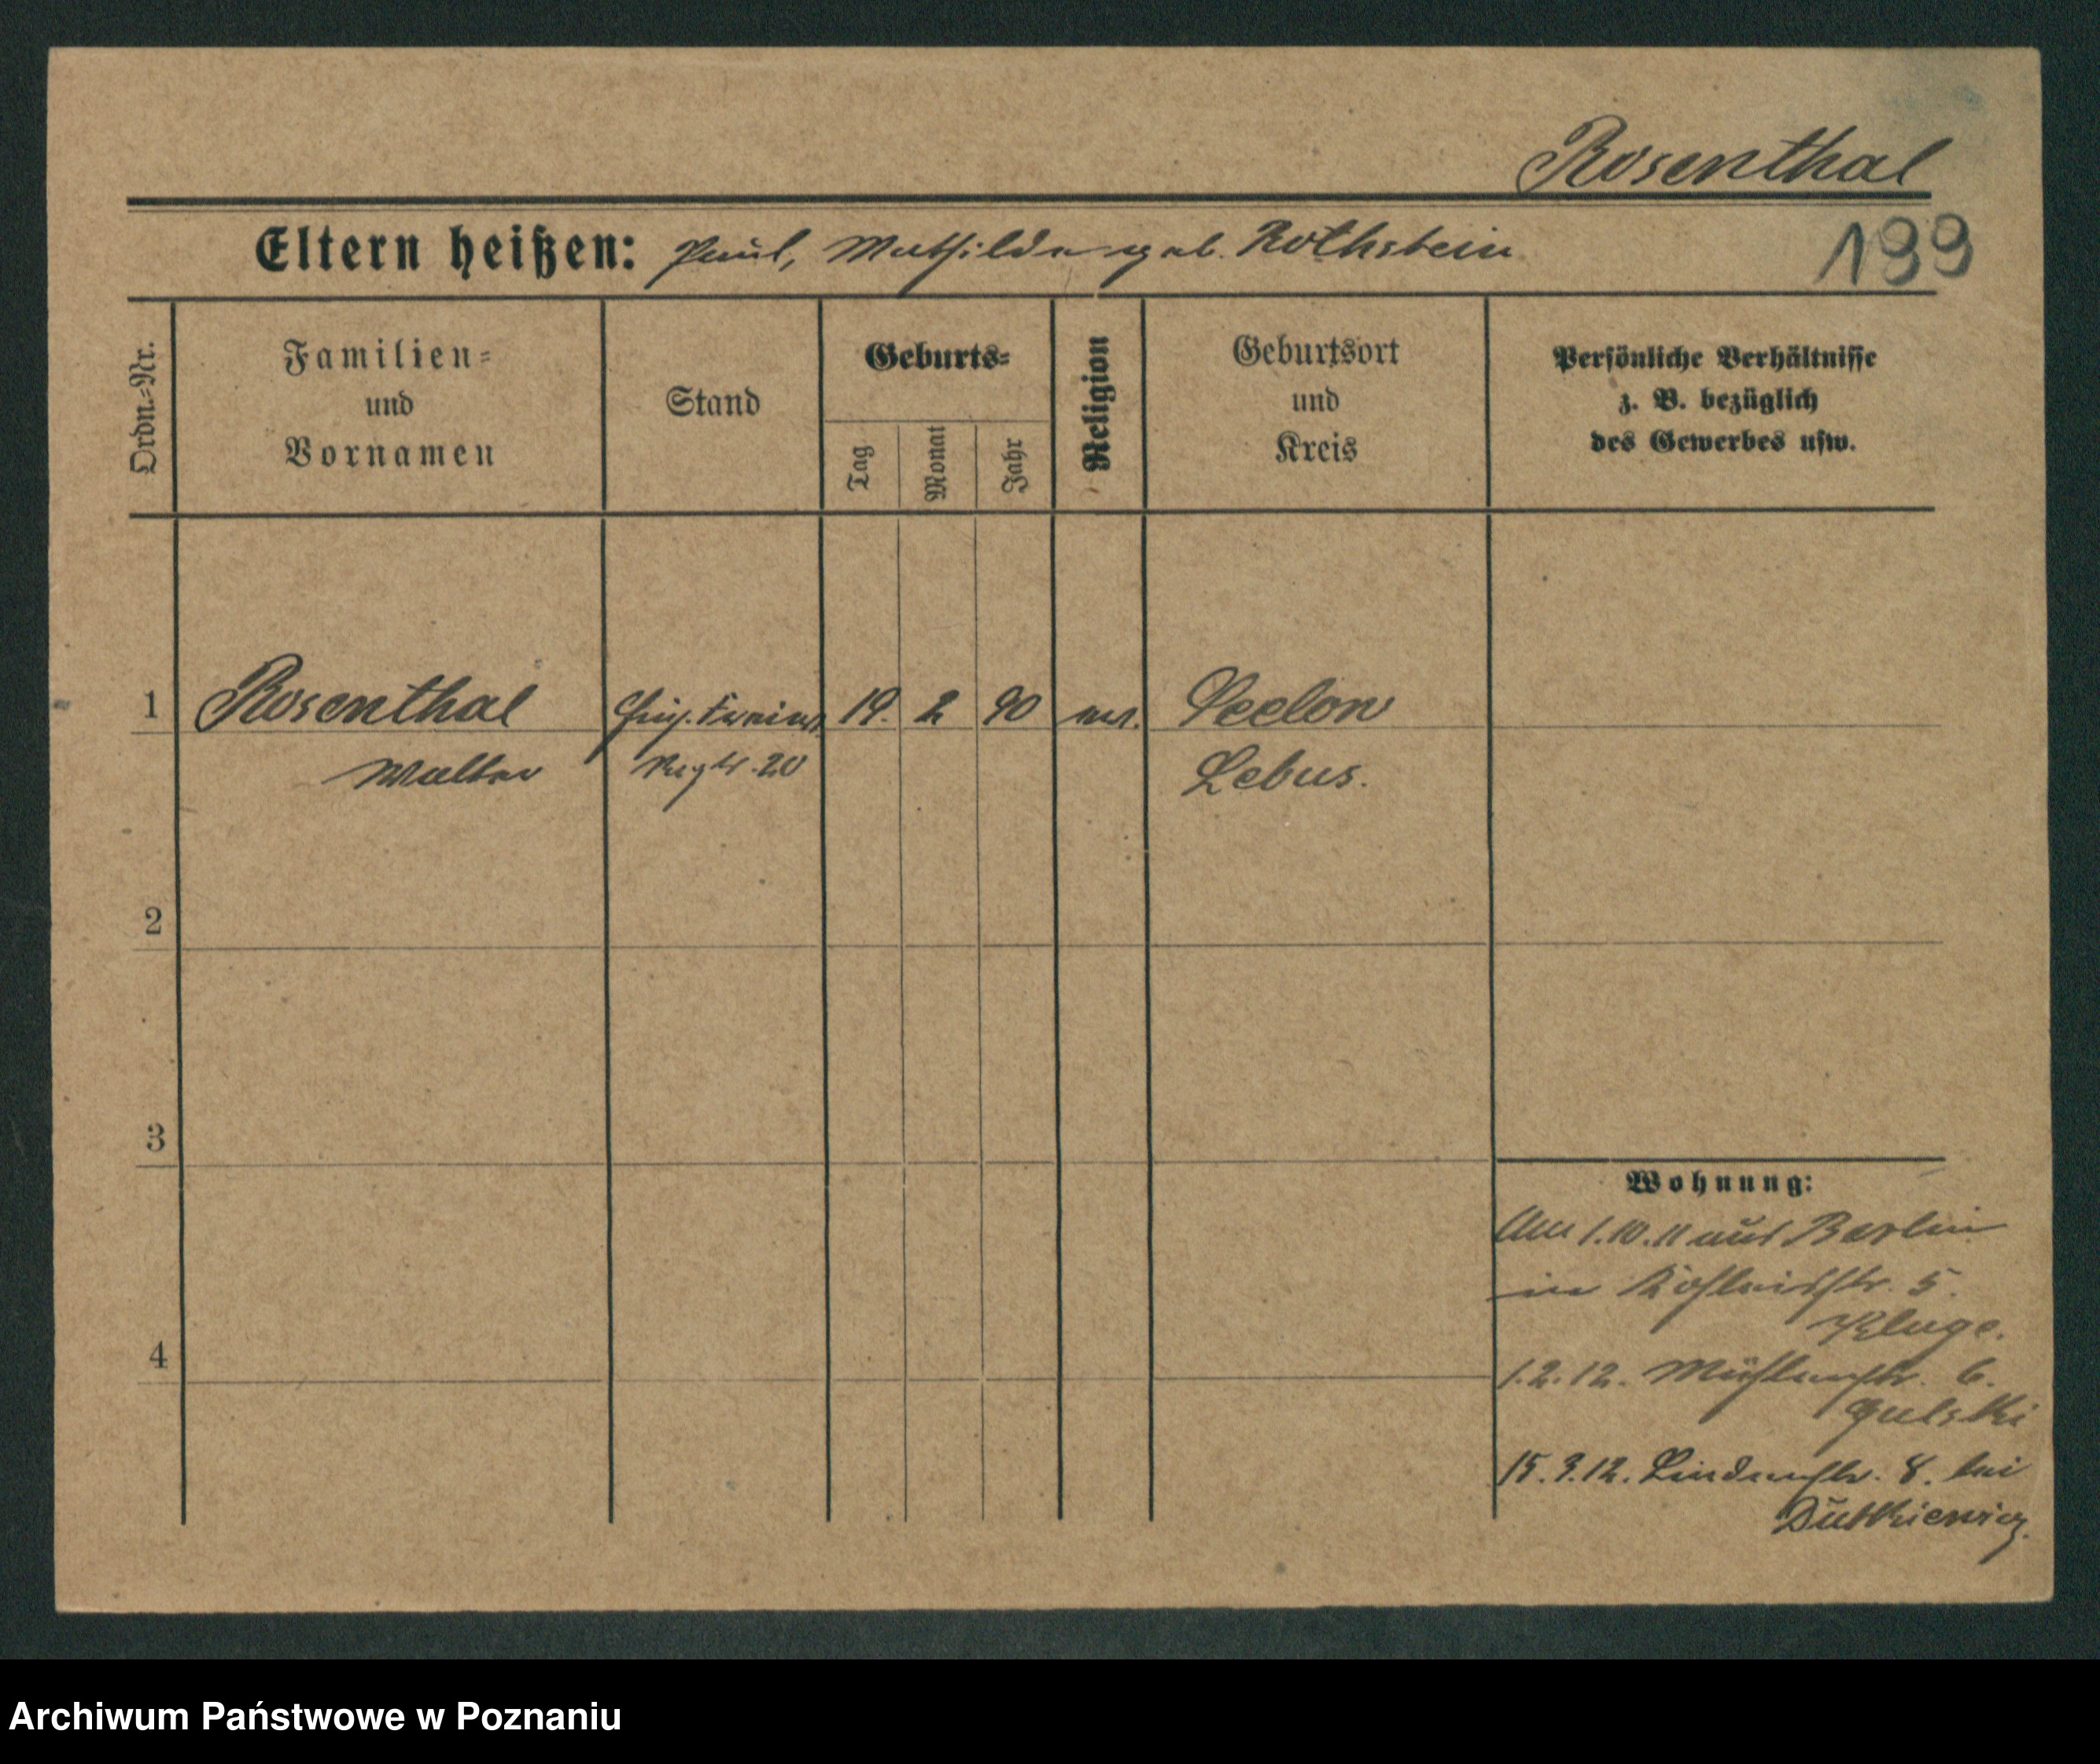 Rosenthal
Eltern heißen: Paul, Mathilde geb. Rothstein
199
Ordn.=Nr.
Familien=
und
Vornamen
Stand
Geburts=
Tag
Monat
Jahr
Religion
Geburtsort
und
Kreis
Persönliche Verhältnisse
z. B. bezüglich
des Gewerbes usw.
1 Rosenthal 19. 2 90 Seelow
Walter Regtr. 20 Lebus.
2
3
4
Wohnung:
Am 1.10.11 aus Berlin
in 5.
Kluge.
1.2.12. Mühlenstr. 6.
Gulski
15.3.12. Lindenstr. 8. bei
Dutkiewicz.
Archiwum Państwowe w Poznaniu